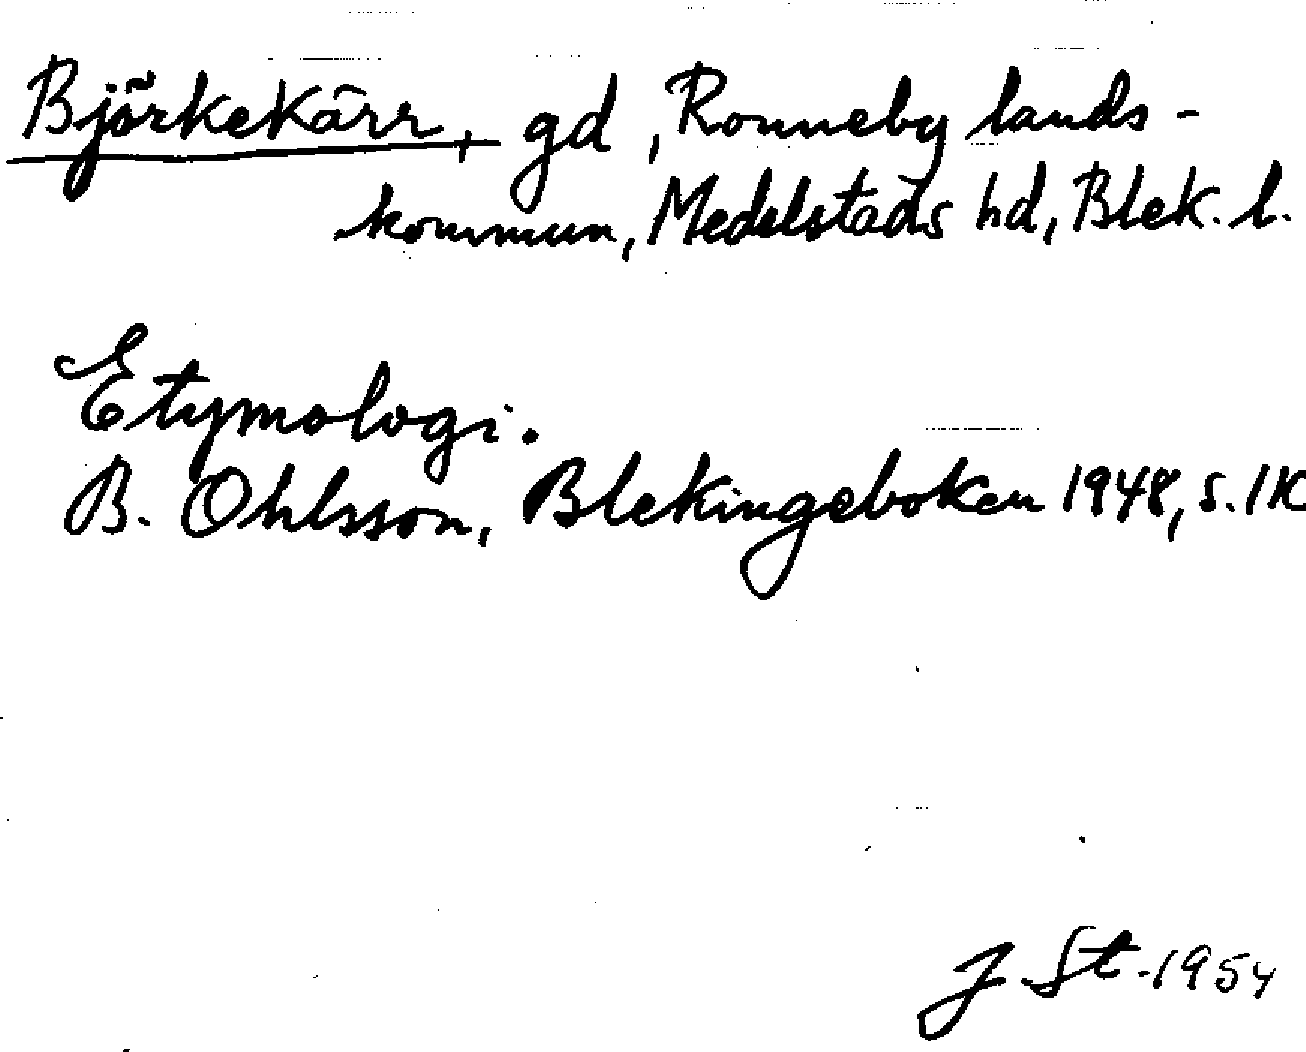 Björkekärr, gd, Ronneby lands-
kommun, Medelstads hd, Blek. l.
Etymologi.
B. Ohlsson, Blekingeboken 1948, s.
J. St. 1954